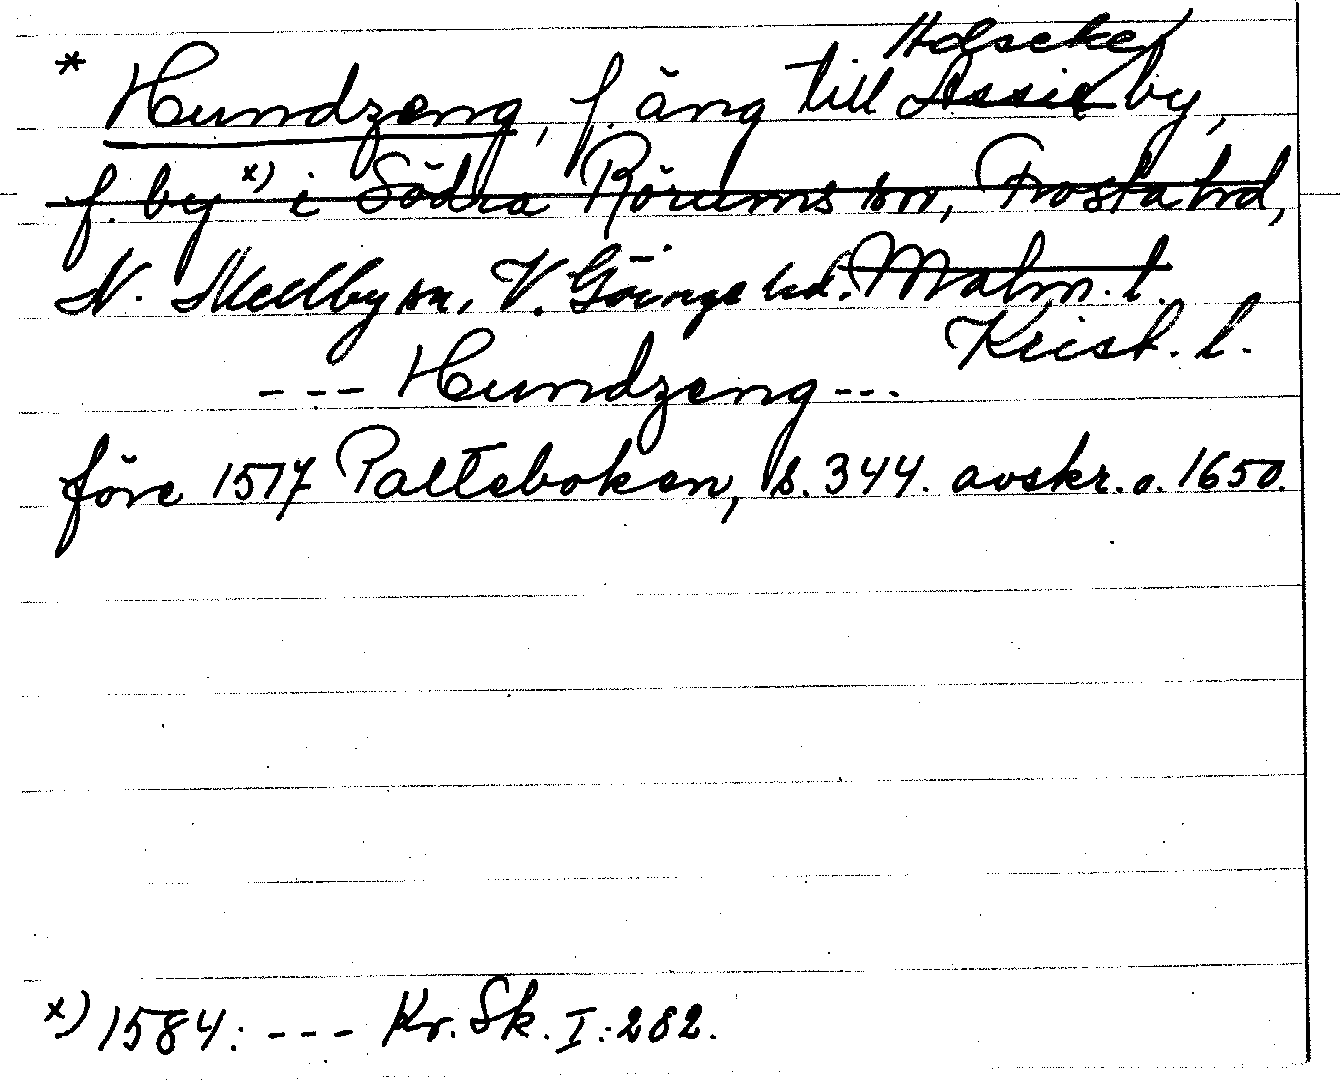 Hdseke
* Hundzeng, f. äng till Assie by,
f. by x) i Södra Rörums sn, Frosta hd,
N. Mellby sn, V. Göinge hd. Malm. l.
Krist. l.
--- Hundzeng ---
före 1517 Palteboken, s. 344. avskr. o. 1650.
x) 1584: --- Kr. Sk. I: 282.